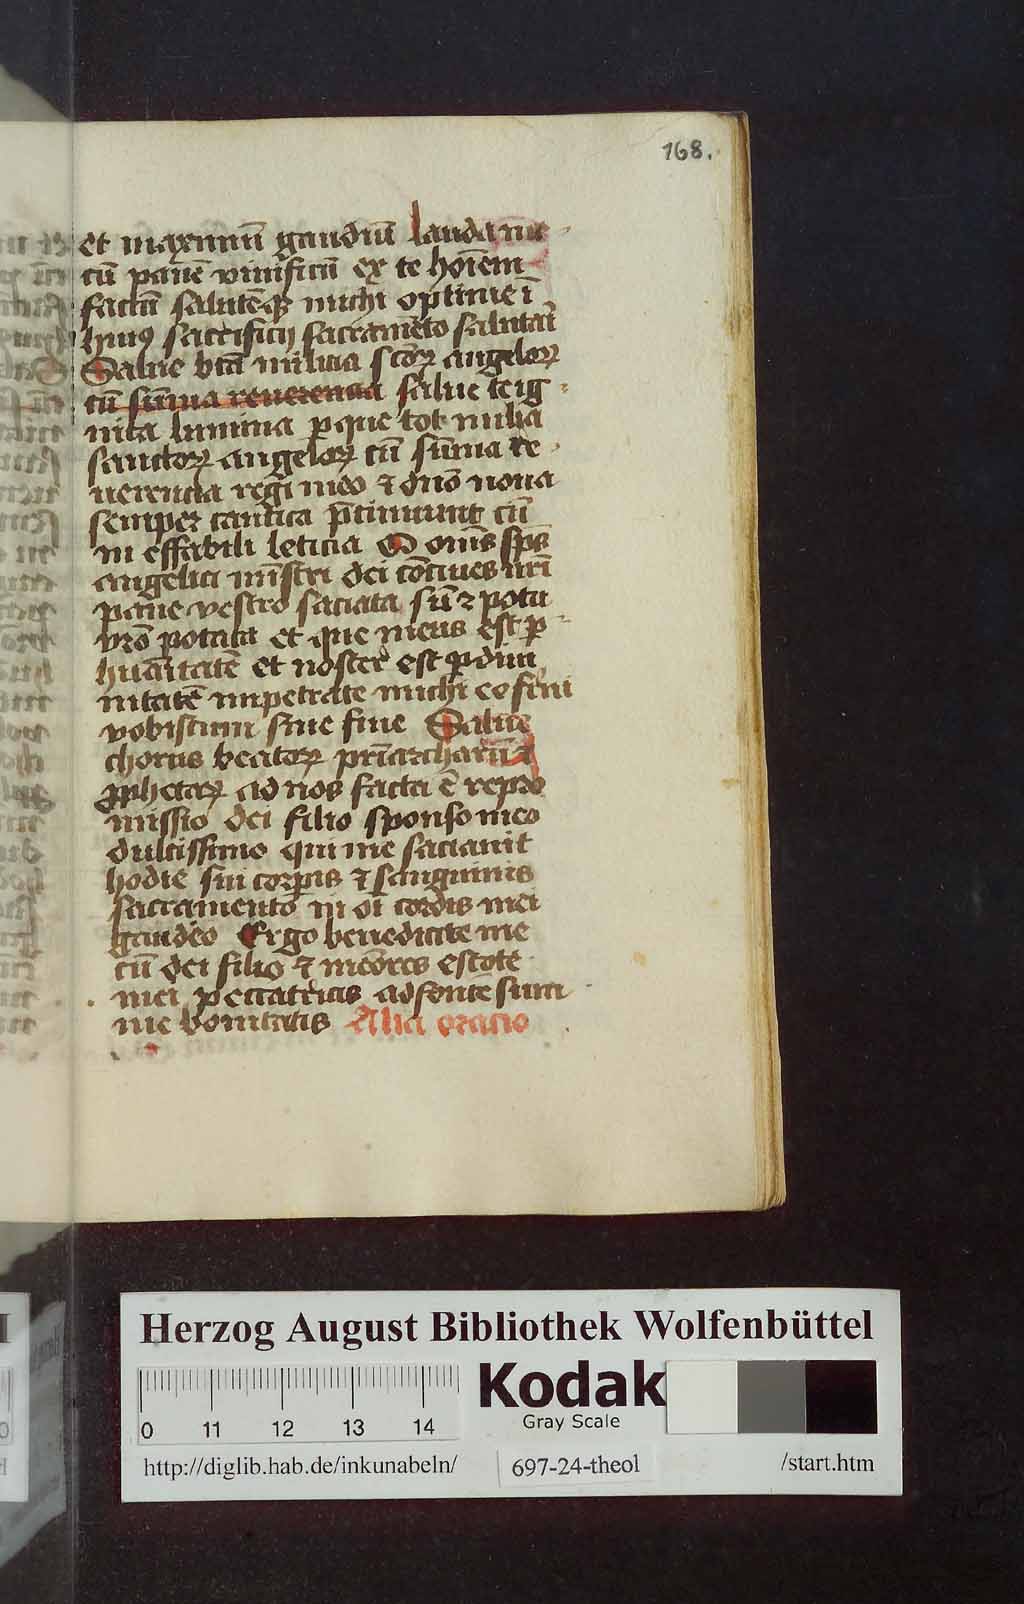 168.
et maximū gaudiū lauda me
cū panē viuificū ex te hoīem
factū salutēqꝫ michi optine ī
huiꝰ sacrificij sacramēto salutari
Salue bta milicia sctoꝝ angeloꝝ
cū sūma reuerencia salue te ig
nita lumina per que tot milia
sanctoꝝ angeloꝝ cū sūma re
uerencia regi meo ⁊ dno noua
semper cantica ꝓmunt cū
in effabili leticia O omīs sp̄s
angelici mīstri dei cōciues mei
pane vestro saciata sū ⁊ potu
vr̄o potata et que meus est ꝑ
huāitatē et noster est ꝑ diui
nitatē impetrate michi eo frui
vobiscum sine fine Salue
chorus beatoꝝ pr̄iarcharū ⁊
ꝓphetaꝝ ad nos facta ē repro
missio dei filio sponso meo
dulcissimo qui me saciauit
hodie sui corporis ⁊ sanguinis
sacramento in oī cordis mei
gaudeo Ergo benedicite me
cū dei filio ⁊ memōres estote
mei peccatricis ad fontē sum
me bonitatis Alia oracio
Herzog August Bibliothek Wolfenbüttel
0 11 12 13 14
Kodak
Gray Scale
http://diglib.hab.de/inkunabeln/ 697-24-theol /start.htm